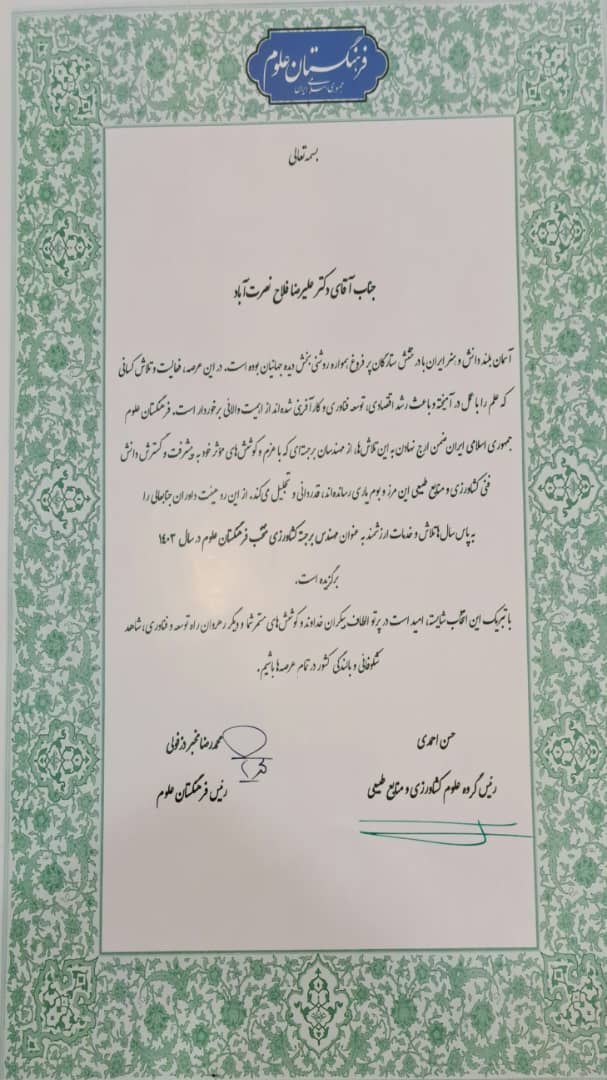 فرهنگستان علوم
جمهوری اسلامی ایران
بسمه تعالی
جناب آقای دکتر علیرضا فلاح نصرت‌آباد
آسمان بلند دانش و هنر ایران با درخشش ستارگان پر فروغ همواره روشنی بخش دیده جهانیان بوده است. در این عرصه، فعالیت و تلاش کسانی
که علم را با عمل در آمیخته و باعث رشد اقتصادی، توسعه فناوری و کارآفرینی شده‌اند از اهمیت والائی برخوردار است. فرهنگستان علوم
جمهوری اسلامی ایران ضمن ارج نهادن به این تلاش‌ها، از مهندسان برجسته‌ای که با عزم و کوشش‌های مؤثر خود به پیشرفت و گسترش دانش
فنی کشاورزی و منابع طبیعی این مرز و بوم یاری رسانده‌اند، قدردانی و تجلیل می‌کند. از این رو هیئت داوران جنابعالی را
به پاس سال‌ها تلاش و خدمات ارزشمند به عنوان مهندس برجسته کشاورزی منتخب فرهنگستان علوم در سال ۱۴۰۳
برگزیده است.
با تبریک این انتخاب شایسته، امید است در پرتو الطاف بیکران خداوند و کوشش‌های مستمر شما و دیگر رهروان راه توسعه و فناوری، شاهد
شکوفائی و بالندگی کشور در تمام عرصه‌ها باشیم.
حسن احمدی
رئیس گروه علوم کشاورزی و منابع طبیعی
محمدرضا مخبر دزفولی
رئیس فرهنگستان علوم